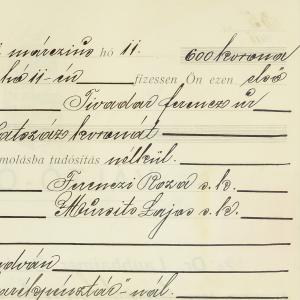 márczius hó 11. 600 korona
hó 11-én fizessen Ön ezen első
Tivadar Ferencz úr
hatszáz koronát
molásba tudósítás nélkül.
Ferenczi Roza s. k.
Lajos s. k.